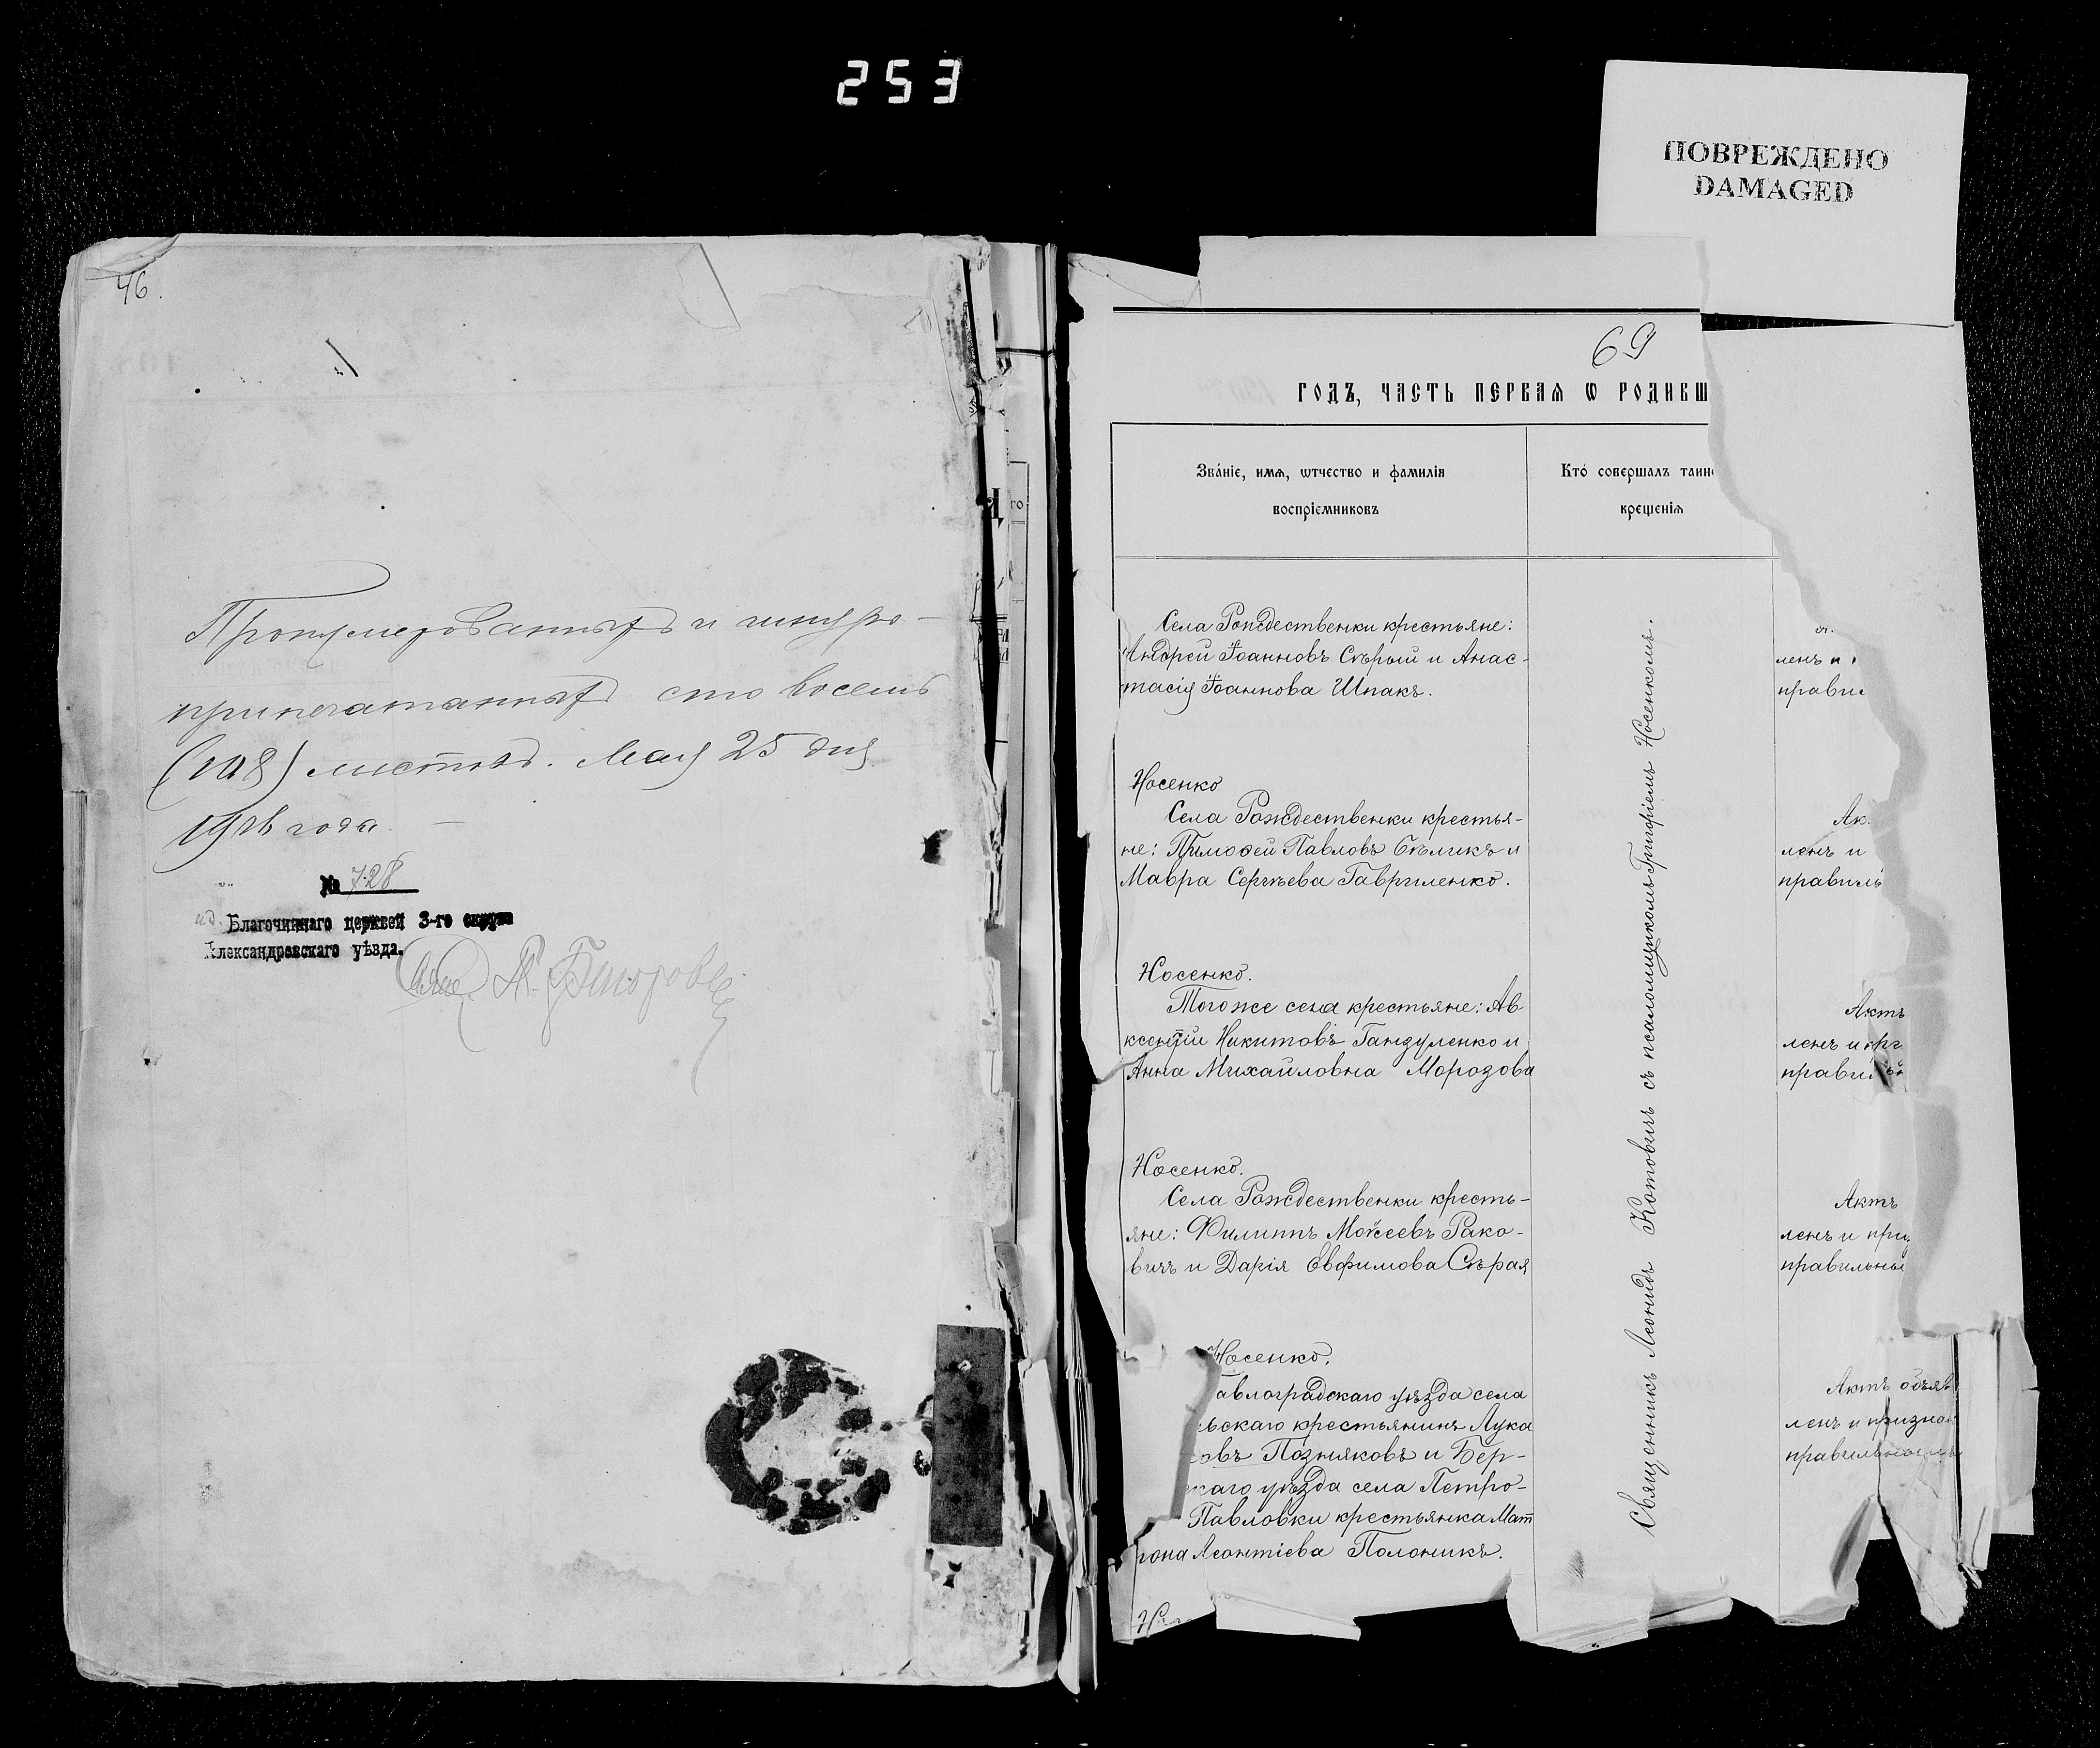 253
ПОВРЕЖДЕНО
DAMAGED
46.
Пронумерованныхъ и шнуро-
припечатанныхъ сто восемь
(108) листовъ. Мая 25 дня
1916 года.
№ 728
и.д. Благочиннаго церквей 3-го округа
Александровскаго уѣзда.
69
ГОДЪ, ЧАСТЬ ПЕРВАЯ Ѡ РОДИВШ
Зва́нїе, имѧ, ѡтчество и фамилїя
воспрїемниковъ
Кто́ совершалъ таин
крещенїѧ
Села Рождественки крестьяне:
Андрей Іоанновъ Сѣрый и Анас-
тасія Іоаннова Шпакъ.
ленъ и
прави
Носенко
Села Рождественки крестья-
не: Тимоѳей Павловъ Бѣликъ и
Мавра Сергѣева Гавриленко.
Ак
ленъ и
правиль
Носенко.
Того же села крестьяне: Ав-
ксентій Никитовъ Гандуленко и
Анна Михайловна Морозова
Актъ
ленъ и пр
прави
Носенко.
Села Рождественки кресть-
яне: Филиппъ Моѵсеевъ Рако-
вичъ и Дарія Евфимова Сѣрая
Актъ
ленъ и при
правильны
Носенко.
авлоградскаго уѣзда села
ьскаго крестьянинъ Лука
овъ Позняковъ и Бер-
скаго уѣзда села Петро-
Павловки крестьянка Мат
рона Леонтіева Полоникъ.
Актъ объяв
ленъ и признан
правильнымъ
Священникъ Леонидъ Котовичъ съ псаломщикомъ Григоріемъ Носенкомъ.